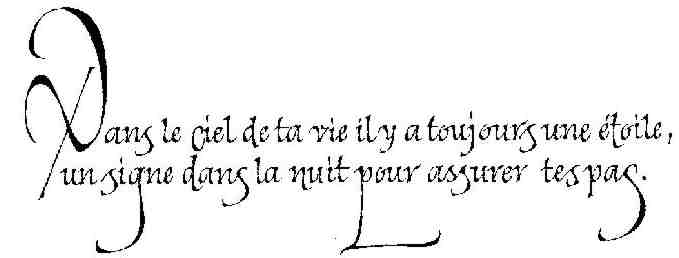 Dans le ciel de ta vie il y a toujours une étoile,
un signe dans la nuit pour assurer tes pas.